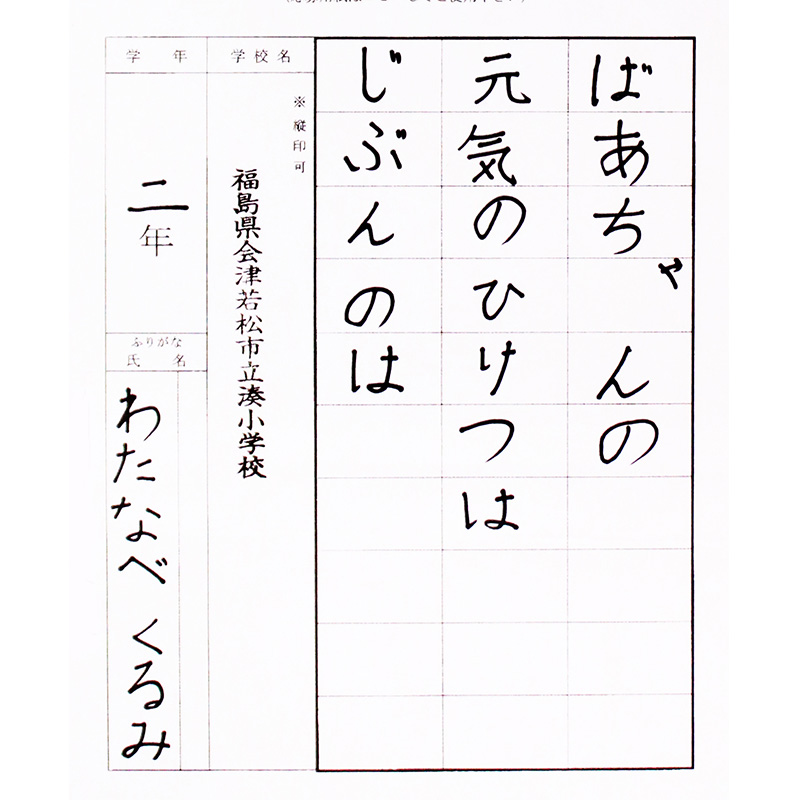 ばあちゃんの
元気のひけつは
じぶんのは
学校名
※縦印可
福島県会津若松市立湊小学校
学年
二年
ふりがな
氏名
わたなべ くるみ